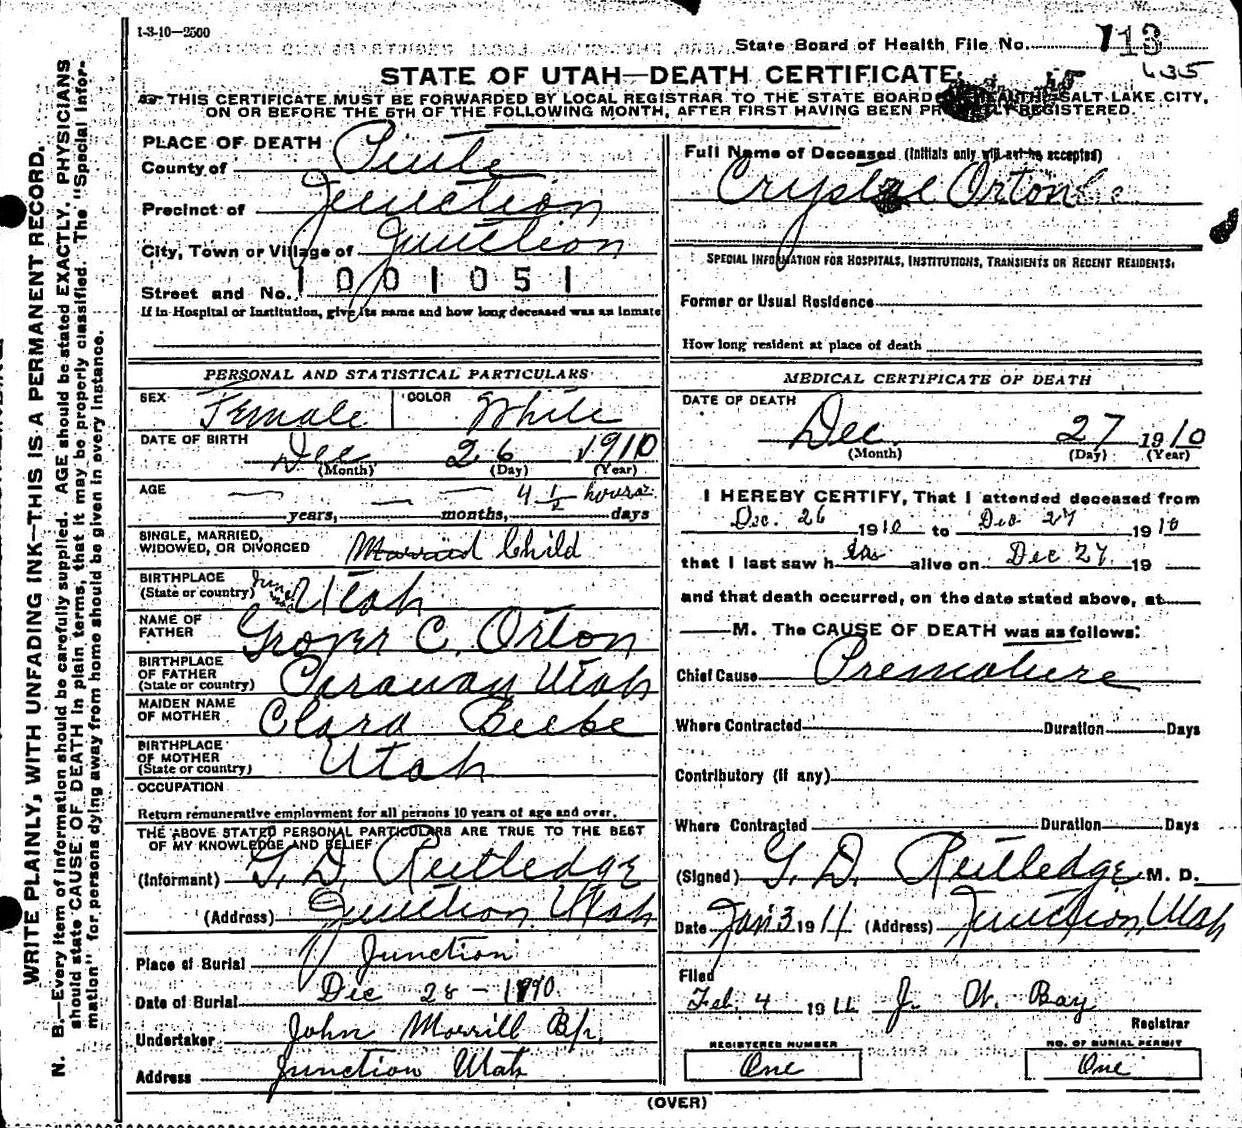 1-3-10—2500
State Board of Health File No. 113
635
STATE OF UTAH—DEATH CERTIFICATE.
THIS CERTIFICATE MUST BE FORWARDED BY LOCAL REGISTRAR TO THE STATE BOARD HEALTH, SALT LAKE CITY,
ON OR BEFORE THE 5TH OF THE FOLLOWING MONTH, AFTER FIRST HAVING BEEN PROPERLY REGISTERED.
WRITE PLAINLY, WITH UNFADING INK—THIS IS A PERMANENT RECORD.
N. B.—Every item of information should be carefully supplied. AGE should be stated EXACTLY. PHYSICIANS
should state CAUSE OF DEATH in plain terms, that it may be properly classified. The "Special Infor-
mation" for persons dying away from home should be given in every instance.
PLACE OF DEATH
County of Piute
Precinct of Junction
City, Town or Village of Junction
1001051
Street and No.
If in Hospital or Institution, give its name and how long deceased was an inmate
PERSONAL AND STATISTICAL PARTICULARS
SEX Female COLOR White
DATE OF BIRTH Dec 26 1910
(Month) (Day) (Year)
AGE 4 1/2 hours
years, months, days
SINGLE, MARRIED,
WIDOWED, OR DIVORCED Married Child
BIRTHPLACE
(State or country) Utah
NAME OF
FATHER Grover C. Orton
BIRTHPLACE
OF FATHER
(State or country) Utah
MAIDEN NAME
OF MOTHER Clara Beebe
BIRTHPLACE
OF MOTHER
(State or country) Utah
OCCUPATION
Return remunerative employment for all persons 10 years of age and over.
THE ABOVE STATED PERSONAL PARTICULARS ARE TRUE TO THE BEST
OF MY KNOWLEDGE AND BELIEF
(Informant) G. D. Rutledge
(Address) Junction Utah
Place of Burial Junction
Date of Burial Dec 28 - 1910.
Undertaker John Morrill Bp.
Address Junction Utah
Full Name of Deceased (Initials only will not be accepted)
Crystal Orton
SPECIAL INFORMATION FOR HOSPITALS, INSTITUTIONS, TRANSIENTS OR RECENT RESIDENTS:
Former or Usual Residence
How long resident at place of death
MEDICAL CERTIFICATE OF DEATH
DATE OF DEATH
Dec. 27 1910
(Month) (Day) (Year)
I HEREBY CERTIFY, That I attended deceased from
Dec. 26 1910 to Dec 27 1910
that I last saw h er alive on Dec 27. 19
and that death occurred, on the date stated above, at
M. The CAUSE OF DEATH was as follows:
Chief Cause Premature
Where Contracted Duration Days
Contributory (if any)
Where Contracted Duration Days
(Signed) G. D. Rutledge M. D.
Date Jan 3 1911 (Address) Junction, Utah
Filed
Feb. 4 1911 J. W. Bay
Registrar
REGISTERED NUMBER
One
NO. OF BURIAL PERMIT
One
(OVER)